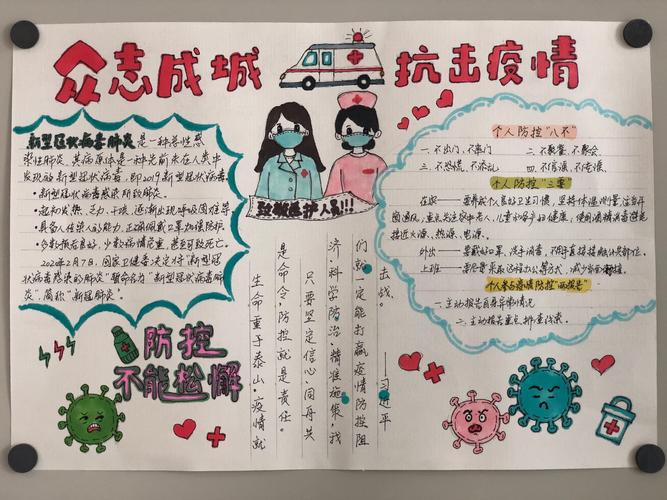 众志成城
抗击疫情
新型冠状病毒肺炎是一种急性感
染性肺炎,其病原体是一种先前未在人类中
发现的新型冠状病毒,即2019新型冠状病毒
·新型冠状病毒感染所致肺炎。
·起初发热、乏力、干咳,逐渐出现呼吸困难等
·具有人传人的能力,正确佩戴口罩加强防护
·多数预后良好,少数病情危重,甚至可致死亡。
2020年2月7日,国家卫健委决定将"新型冠
状病毒感染的肺炎"暂命名为"新型冠状病毒肺
炎",简称"新冠肺炎"
防控
不能松懈
致敬医护人员!!!
生命重于泰山,疫情就
是命令,防控就是责任。
只要坚定信心、同舟共
济、科学防治、精准施策,我
们就一定能打赢疫情防控阻
击战。
——习近平
个人防控"八不"
一.不出门、不串门
二.不聚餐、不聚会
三.不恐慌、不添乱
四.不信谣、不传谣
个人防控"三要"
在家——要养成个人良好卫生习惯,坚持体温测量,注意开
窗通风,重点关注家中老人、儿童的健康,使用酒精消毒避免
接近火源、热源、电源。
外出——要戴好口罩、洗手消毒,不用手直接接触
上班——要尽量采取远程办公等方式,减少
个人参与疫情防控"两报告"
一.主动报告自身异常情况
二.主动报告重点排查线索。